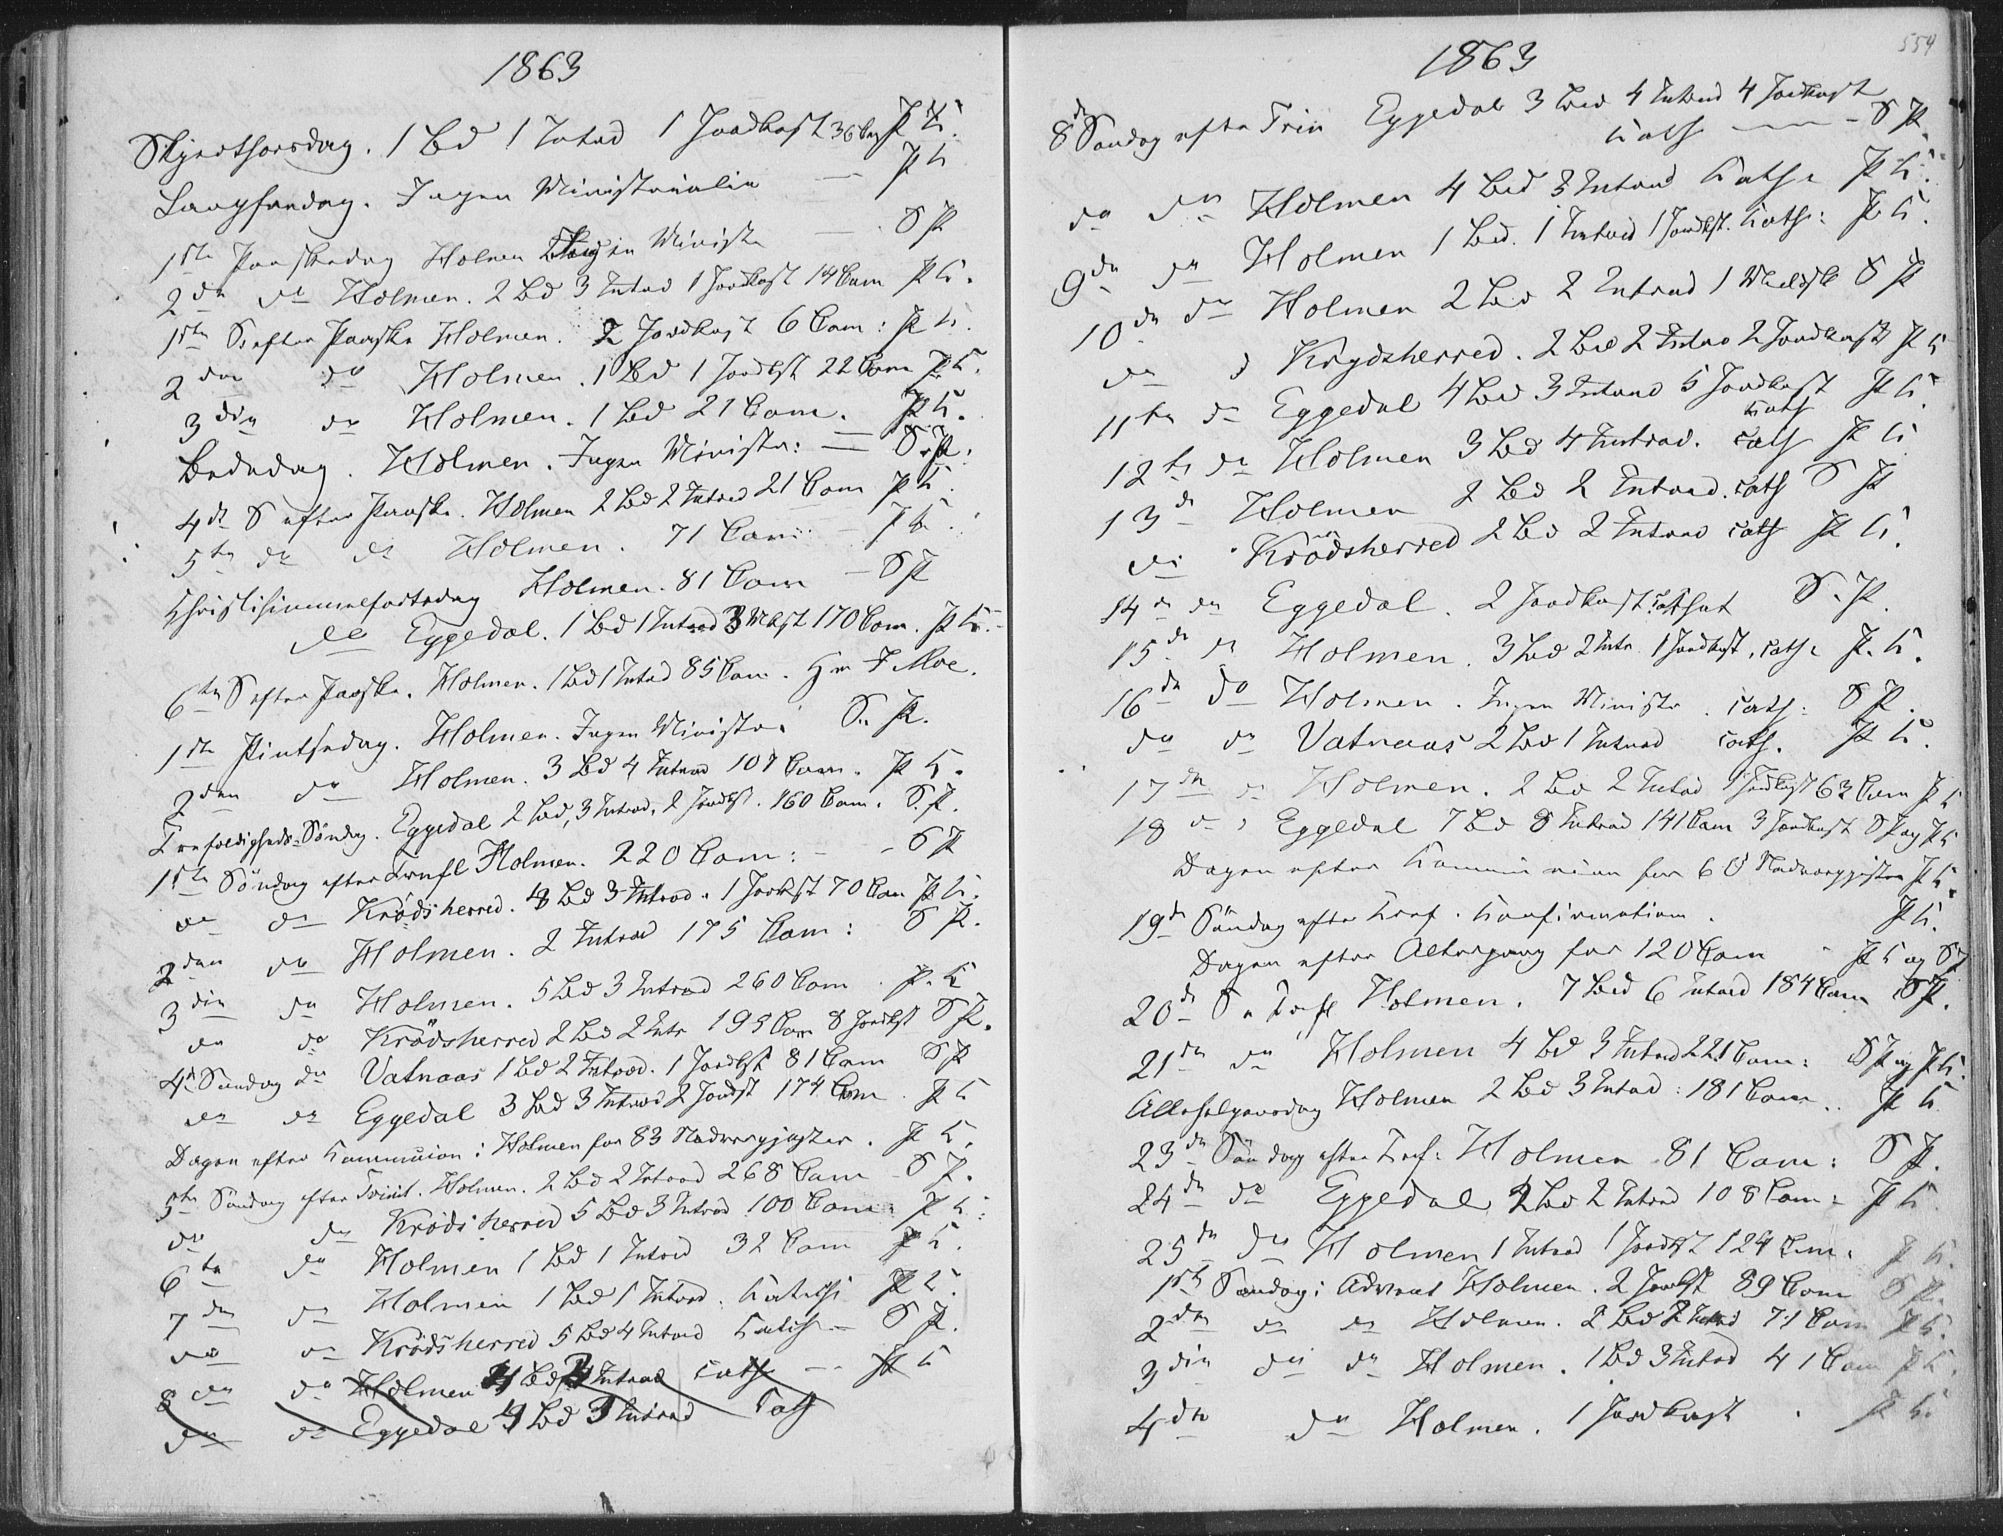 1863
Skjærthorsdag. 1 Bd 1 Introd 1 Jordkast 36 Com P K.
Langfredag. Ingen Ministerialia — P K
1ste Paaskedag Holmen Ingen Ministr — S P
2den do Holmen. 2 Bd 3 Introd 1 Jordkast 14 Com P K.
1ste S. efter Paaske Holmen. 2 Jordkast 6 Com: P K.
2den do Holmen. 1 Bd 1 Jordkst 22 Com P K.
3die do Holmen. 1 Bd 21 Com. P K.
Bededag. Holmen. Ingen Ministr: — S. P.
4de S efter Paaske. Holmen 2 Bd 2 Introd 21 Com P K.
5te do do Holmen. 71 Com: — P K.
Christihimmelfartsdag Holmen. 81 Com — S P
do Eggedal. 1 Bd 1 Introd 3 170 Com. P K.
6te S efter Paaske. Holmen. 1 Bd 1 Introd 85 Com. Hr J Moe.
1ste Pintsedag. Holmen. Ingen Ministr: S. P.
2den do Holmen. 3 Bd 4 Introd 107 Com. P K.
Trefoldigheds-Söndag. Eggedal 2 Bd, 3 Introd, 2 Jordkst. 160 Com. S. P.
1ste Söndag efter Trefl Holmen. 220 Com: - - S P
do do Krödsherred. 8 Bd 3 Introd. 1 Jordkst 70 Com P K.
2den do Holmen. 2 Introd 175 Com: S P.
3die do Holmen. 5 Bd 3 Introd 260 Com. P. K
do do Krödsherred 2 Bd 2 Intr 195 Com 8 Jordkst S P.
4de Søndag do Vatnaas 1 Bd 2 Introd. 1 Jordkst 81 Com S P
do do Eggedal 3 Bd 3 Introd 2 Jordkst 174 Com. P K
Dagen efter Kommunion i Holmen for 83 Nadvergjester. P K.
5te Söndag efter Trinit. Holmen. 2 Bd 2 Introd 268 Com S P.
do do Krødsherred 5 Bd 3 Introd 100 Com: P K:
6te do Holmen 1 Bd 1 Introd 32 Com P K.
7de do Holmen 1 Bd 1 Introd. P K.
do do Krødsherred 5 Bd 4 Introd — S P.
8de do Holmen Bd Introd Cath — P K
do do Eggedal Bd Introd Cath
1863
554
8de Søndag efter Trin Eggedal 3 Bd 4 Introd 4 Jordkast
Kath — S P.
do do Holmen 4 Bd 3 Introd Kath: P K.
9de do Holmen 1 Bd. 1 Introd 1 Jordkst. Kath: P K.
10de do Holmen 2 Bd 2 Introd 1 S P
do do Krydsherred. 2 Bd 2 Introd 2 Jordkast P K
11te do Eggedal 4 Bd 3 Introd 5 Jordkast P K.
Kath
12te do Holmen 3 Bd 4 Introd. Cath P K
13de Holmen 2 Bd 2 Introd. Cath S P
do Krödsherred 2 Bd 2 Introd Cath P K.
14de do Eggedal. 2 Jordkast S. P.
15de do Holmen. 3 Bd 2 Intr. 1 Jordkast, Cath: P. K.
16de do Holmen. Ingen Ministr. Cath: S P.
do do Vatnaas 2 Bd 1 Introd Cath. P K.
17de do Holmen. 2 Bd 2 Introd 1 Jordkast 63 Com P K
18de do Eggedal 7 Bd 8 Introd 141 Com 3 Jordkast S P og P K
Dagen efter Kommunion for 60 Nadvergjester P K.
19de Söndag efter Tref. Konfirmation. P K.
Dagen efter Altergang for 120 Com - P K og S P
20de S e Trefl Holmen. 7 Bd 6 Introd 184 Com S P.
21de do Holmen 4 Bd 3 Introd 221 Com: S P og P K.
Allehelgensdag Holmen 2 Bd 3 Introd: 181 Com.. P K
23de Söndag efter Tref: Holmen 81 Com: S P.
24de do Eggedal 2 Bd 2 Introd 108 Com: P K
25de do Holmen 1 Introd 1 Jordkst 124 Com. P K.
1ste Søndag i Advent Holmen. 2 Jordkst 89 Com S P.
2den do do Holmen. 2 Bd 2 Introd 71 Com P K.
3die do do Holmen. 1 Bd 3 Introd 41 Com P K.
4de do Holmen. 1 Jordkast. P K.